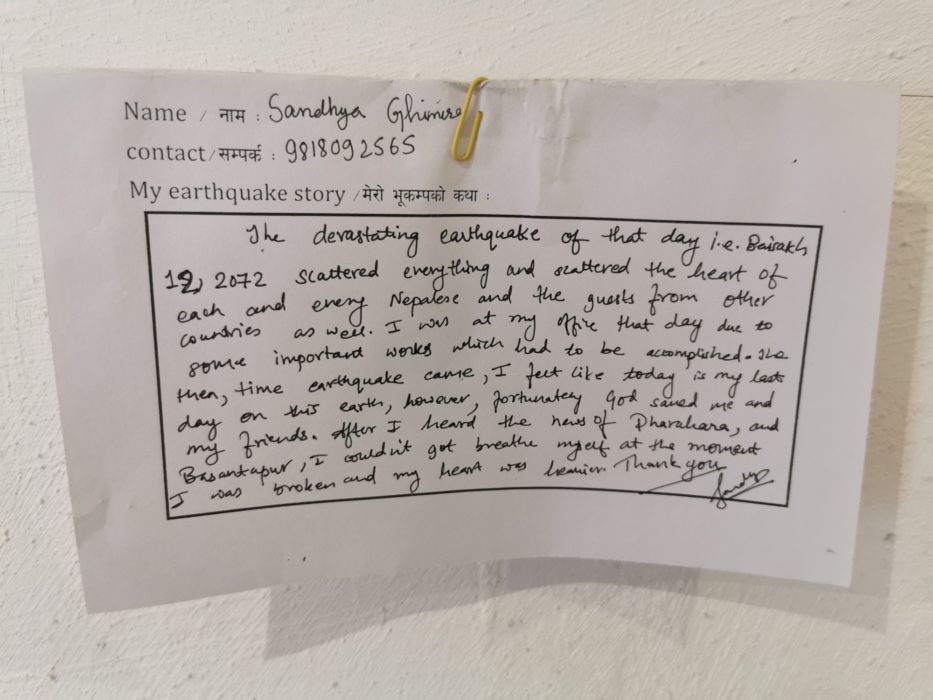 Name / नाम : Sandhya Ghimire
contact/सम्पर्क : 9818092565
My earthquake story /मेरो भूकम्पको कथा :
The devastating earthquake of that day i.e. Baisakh
12, 2072 scattered everything and scattered the heart of
each and every Nepalese and the guests from other
countries as well. I was at my office that day due to
some important works which had to be accomplished. The
then, time earthquake came, I felt like today is my last
day on this earth, however, fortunately God saved me and
my friends. After I heard the news of Dharahara, and
Basantapur, I couldn't got breathe myself at the moment
I was broken and my heart was heavier. Thank you